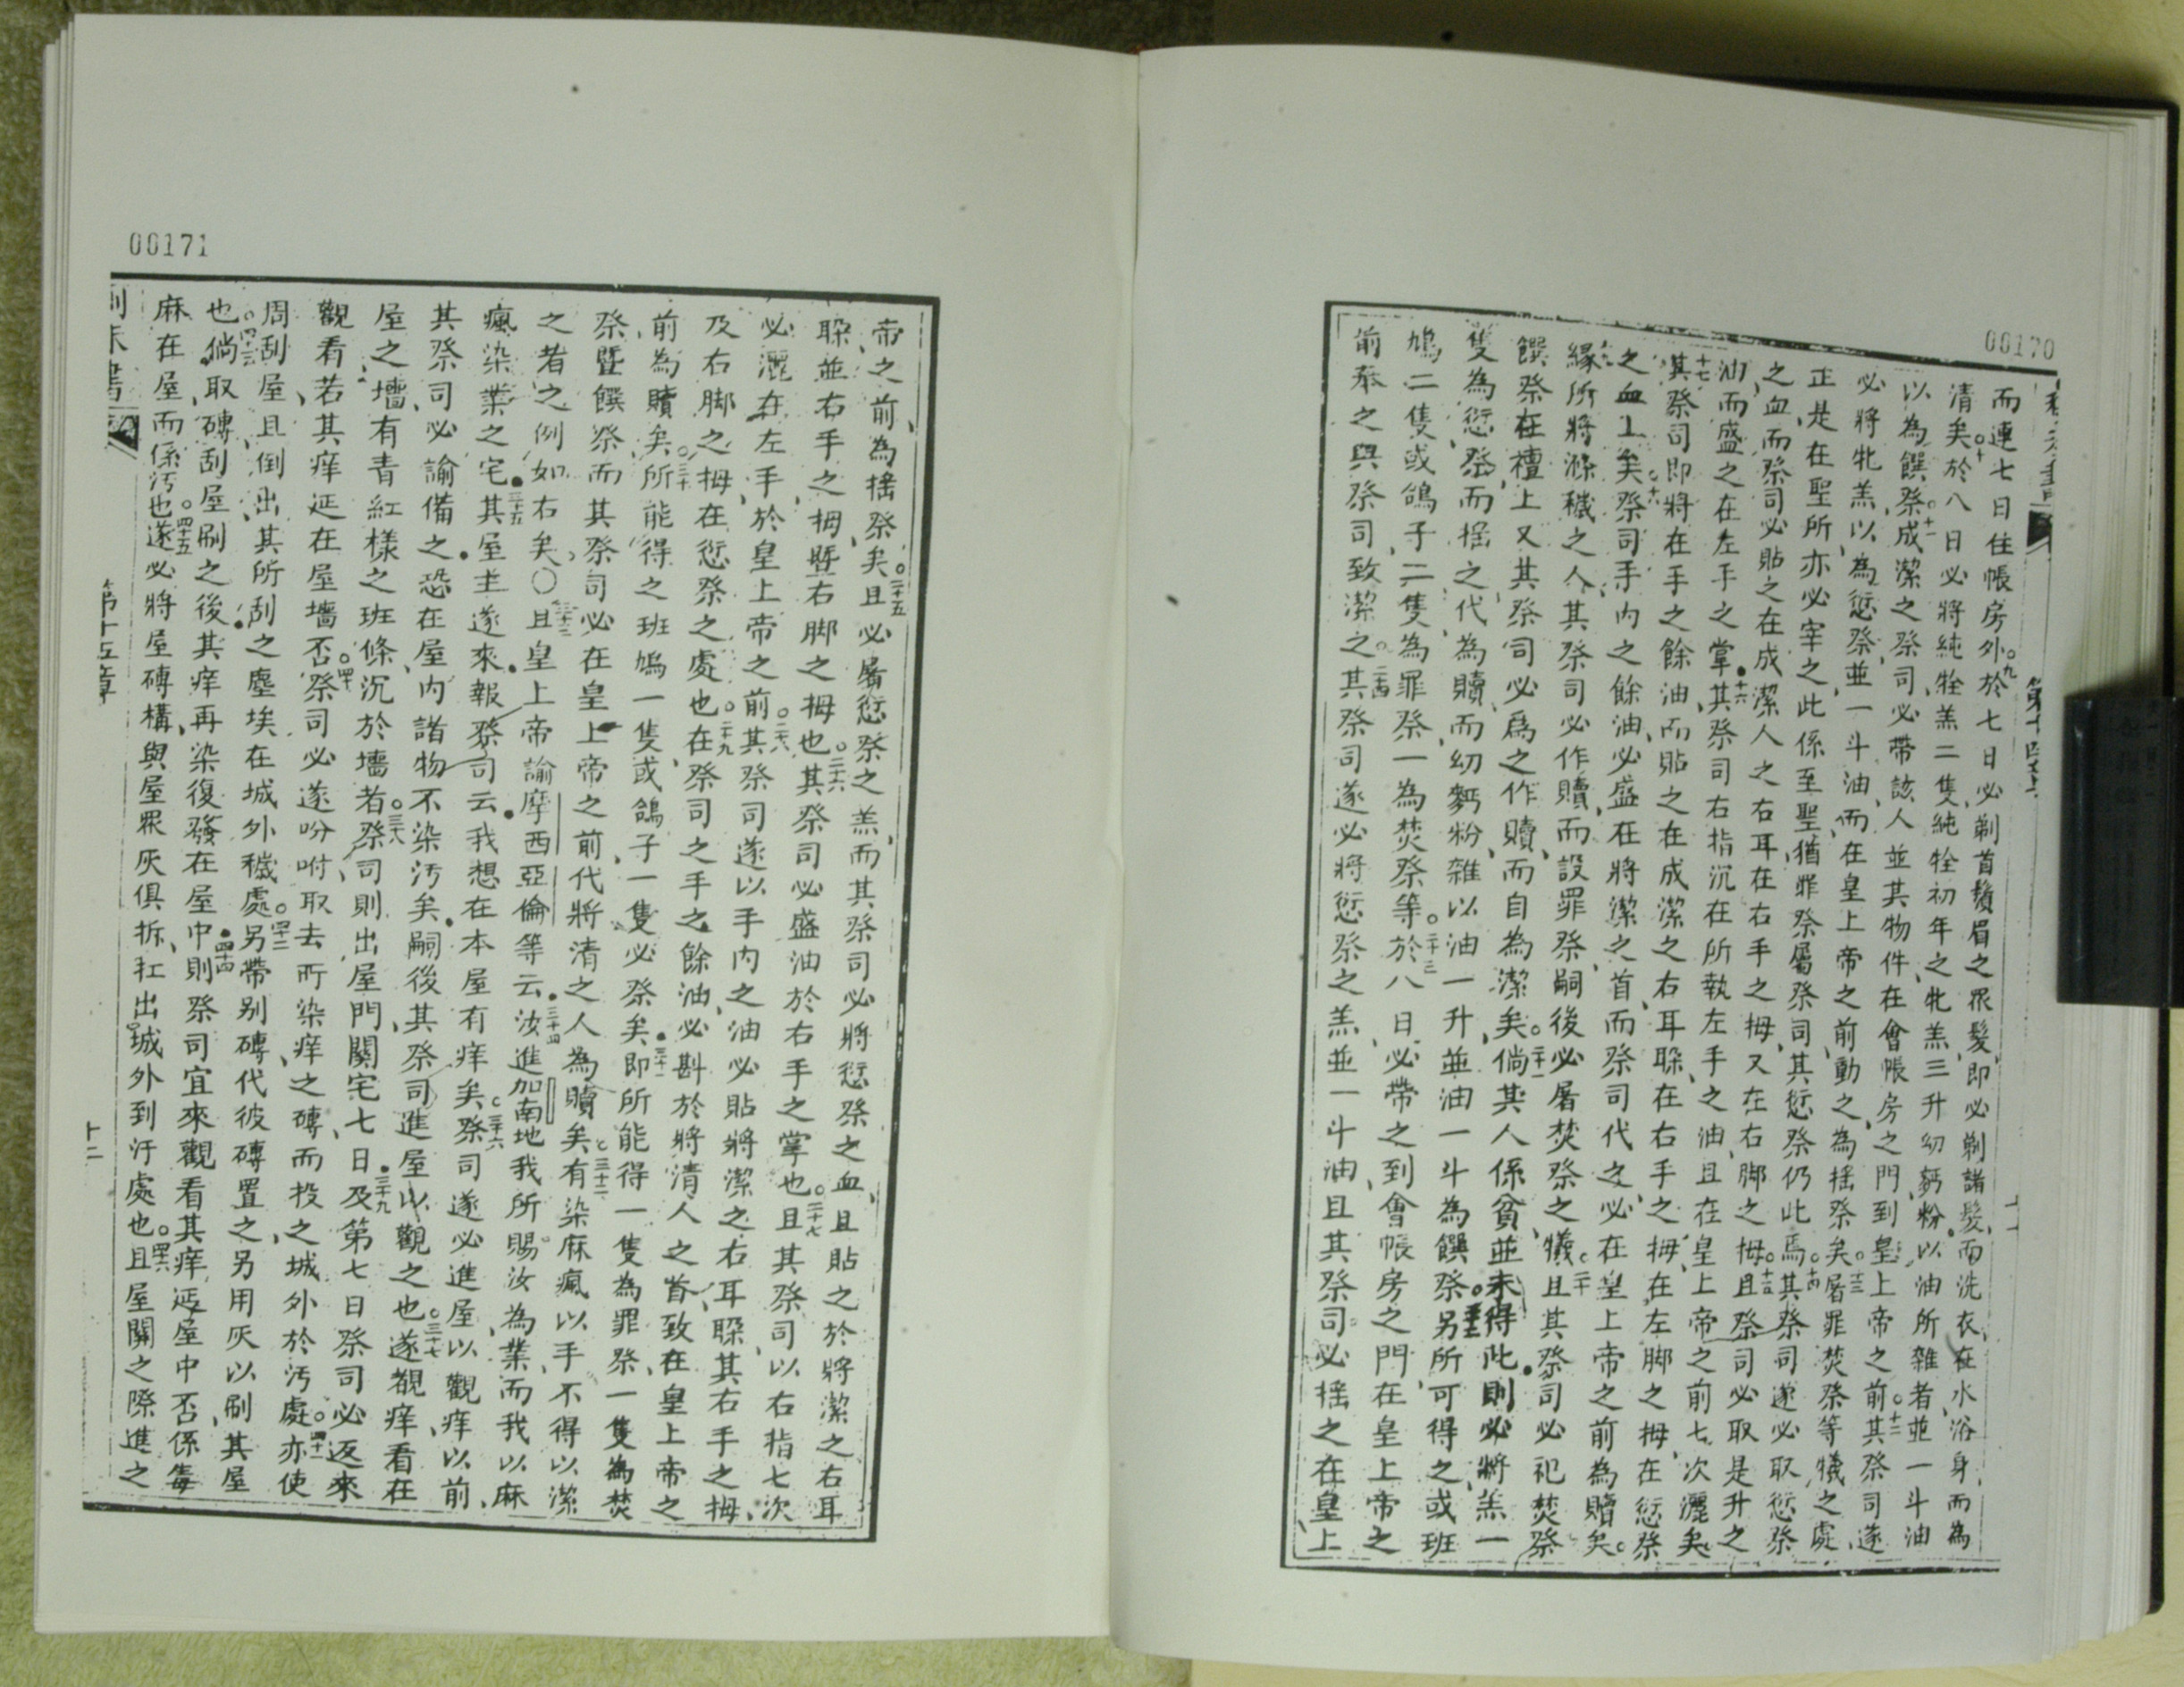 00170
第十四章
十一
而連七日住帳房外。九於七日必剃首鬚眉之眾髮、即必剃諸髮、而洗衣、在水浴身、而為
清矣。十於八日必將純牷羔二隻、純牷初年之牝羔、三升幼麪粉、以油所雜者、並一斗油
以為饌祭。十一成潔之祭司、必帶該人並其物件、在會帳房之門到皇上帝之前。十二其祭司遂
必將牝羔以為愆祭、並一斗油、而在皇上帝之前動之、為搖祭矣。十三屠罪焚祭等犧之處、
正是在聖所亦必宰之、此係至聖、猶罪祭屬祭司、其愆祭仍此焉。十四其祭司遂必取愆祭
之血、而祭司必貼之在成潔人之右耳、在右手之拇、又在右脚之拇。十五且祭司必取是升之
油、而盛之在左手之掌。十六其祭司右指沉在所執左手之油、且在皇上帝之前七次灑矣。
十七其祭司即將在手之餘油、而貼之在成潔之右耳朶、在右手之拇、在左脚之拇、在愆祭
之血上矣。十八祭司手內之餘油、必盛在將潔之首、而祭司代之必在皇上帝之前為贖矣。
緣所將滌穢之人、其祭司必作贖、而設罪祭、嗣後必屠焚祭之犧。二十且其祭司必祀焚祭
饌祭在壇上、又其祭司必為之作贖、而自為潔矣。二十一倘其人係貧、並未得此、則必將羔一
隻為愆祭、而搖之、代為贖、而幼麪粉雜以油一升、並油一斗為饌祭。二十二另所可得之、或班
鳩二隻、或鴿子二隻、為罪祭、一為焚祭等。二十三於八日必帶之到會帳房之門、在皇上帝之
前奉之與祭司、致潔之。二十四其祭司遂必將愆祭之羔、並一斗油、且其祭司必搖之在皇上
00171
帝之前、為搖祭矣。二十五且必屠愆祭之羔、而其祭司必將愆祭之血、且貼之於將潔之右耳
朶、並右手之拇、暨右脚之拇也。二十六其祭司必盛油於右手之掌也。二十七且其祭司、以右指七次
必灑在左手、於皇上帝之前。二十八其祭司遂以手內之油、必貼將潔之右耳朶、其右手之拇、
及右脚之拇、在愆祭之處也。二十九在祭司之手之餘油、必斟於將清人之首、致在皇上帝之
前為贖矣。三十所能得之班鳩一隻、或鴿子一隻、必祭矣。三十一即所能得一隻為罪祭、一隻為焚
祭、暨饌祭、而其祭司必在皇上帝之前、代將清之人為贖矣。三十二有染麻瘋、以手不得以潔
之者之例如右矣。〇三十三且皇上帝諭摩西亞倫等云。三十四汝進加南地、我所賜汝為業、而我以麻
瘋染業之宅。三十五其屋主遂來報祭司云、我想在本屋有痒矣。三十六祭司遂必進屋、以觀痒、以前
其祭司必諭備之、恐在屋內諸物不染污矣。嗣後其祭司進屋、以觀之也。三十七遂覩痒、看在
屋之墻、有青紅樣之班條、沉於墻者。三十八祭司則出屋門、關宅七日。三十九及第七日祭司必返來
觀看、若其痒延在屋墻否。四十祭司必遂吩咐取去所染痒之磚、而投之城外於污處。四十一亦使
周刮屋、且倒出其所刮之塵埃在城外穢處。四十二另帶別磚代彼磚置之、另用灰以刷其屋
也。四十三倘取磚刮屋刷之後、其痒再染復發在屋中。四十四則祭司宜來觀看、其痒延屋中否、係毒
麻在屋、而係污也。四十五遂必將屋磚構、與屋眾灰俱拆、扛出城外、到汙處也。四十六且屋關之際、進之
第十五章
十二